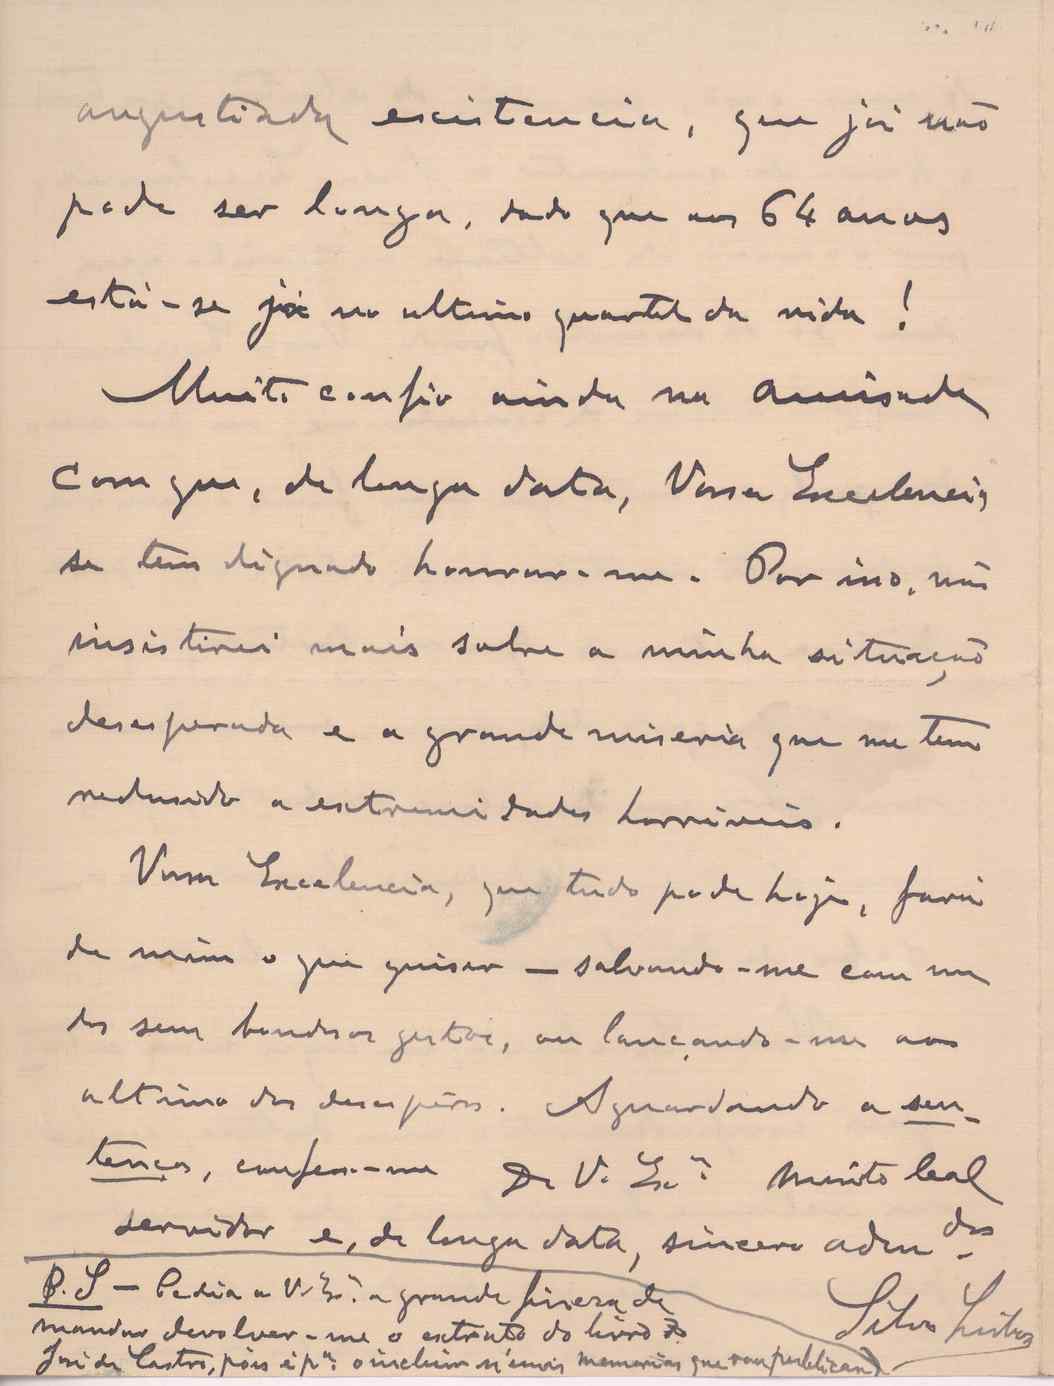 angustiada existencia, que já não
pode ser longa, dado que aos 64 anos
está-se já no ultimo quartel da vida!
Muito confio ainda na amisade
com que, de longa data, Vossa Excelencia
se tem dignado honrar-me. Por isso, não
insistirei mais sobre a minha situação
desesperada e a grande miseria que me tem
redusido a extremidades horriveis.
Vossa Excelencia, que tudo pode hoje, fará
de mim o que quiser — salvando-me com um
dos seus bondosos gestos, ou lançando-me ao
ultimo dos desespêros. Aguardando a sen-
tença, confesso-me De V. Ex.ª muito leal
servidor e, de longa data, sincero adm.dor
Silva Lisboa
P.S — Pedia a V. Ex.ª a grande fineza de
mandar devolver-me o extrato do livro do
José de Castro, pois é p.ª o incluir n'umas memorias que vou publicando